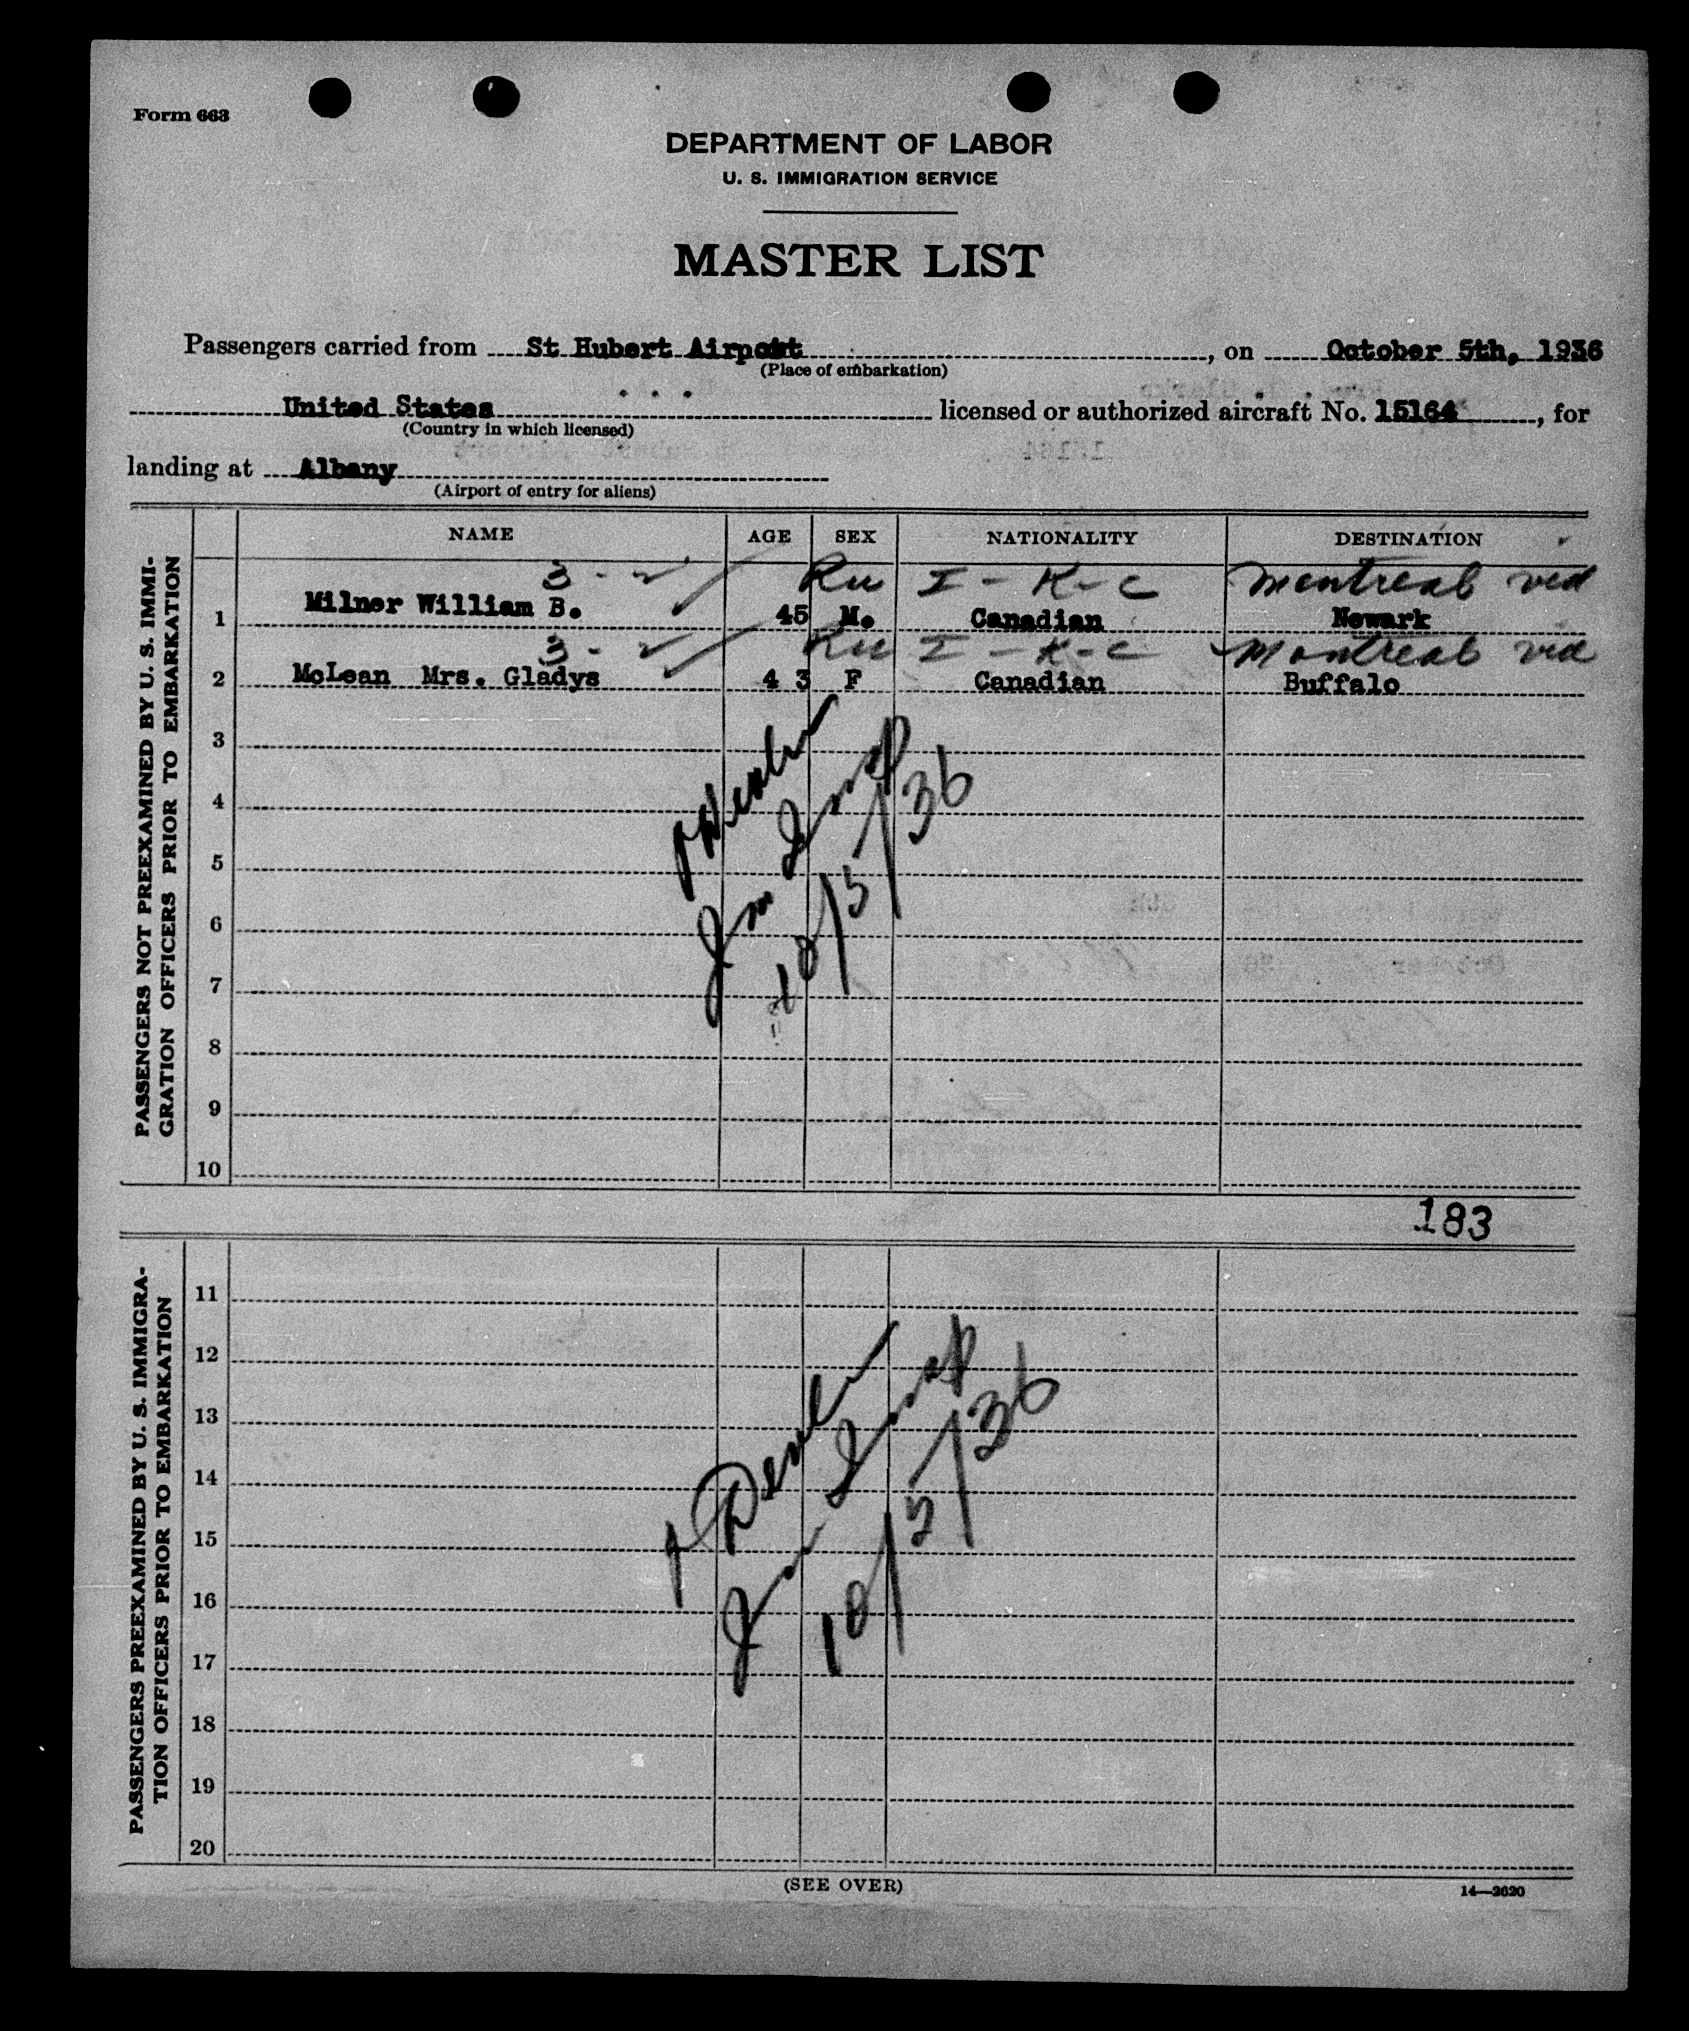 Form 663
DEPARTMENT OF LABOR
U. S. IMMIGRATION SERVICE
MASTER LIST
Passengers carried from St Hubert Airport, on October 5th, 1936
(Place of embarkation)
United States licensed or authorized aircraft No. 15164, for
(Country in which licensed)
landing at Albany
(Airport of entry for aliens)
PASSENGERS NOT PREEXAMINED BY U. S. IMMI-
GRATION OFFICERS PRIOR TO EMBARKATION
NAME AGE SEX NATIONALITY DESTINATION
3 - I - K - C Montreal via
1 Milner William B. 45 M. Canadian Newark
3 - I - K - C Montreal via
2 McLean Mrs. Gladys 4 3 F Canadian Buffalo
3
4
5
6
7
8
9
10
Imm Insp
10/5/36
183
PASSENGERS PREEXAMINED BY U. S. IMMIGRA-
TION OFFICERS PRIOR TO EMBARKATION
11
12
13
14
15
16
17
18
19
20
Imm Insp
10/5/36
(SEE OVER)
14—2620